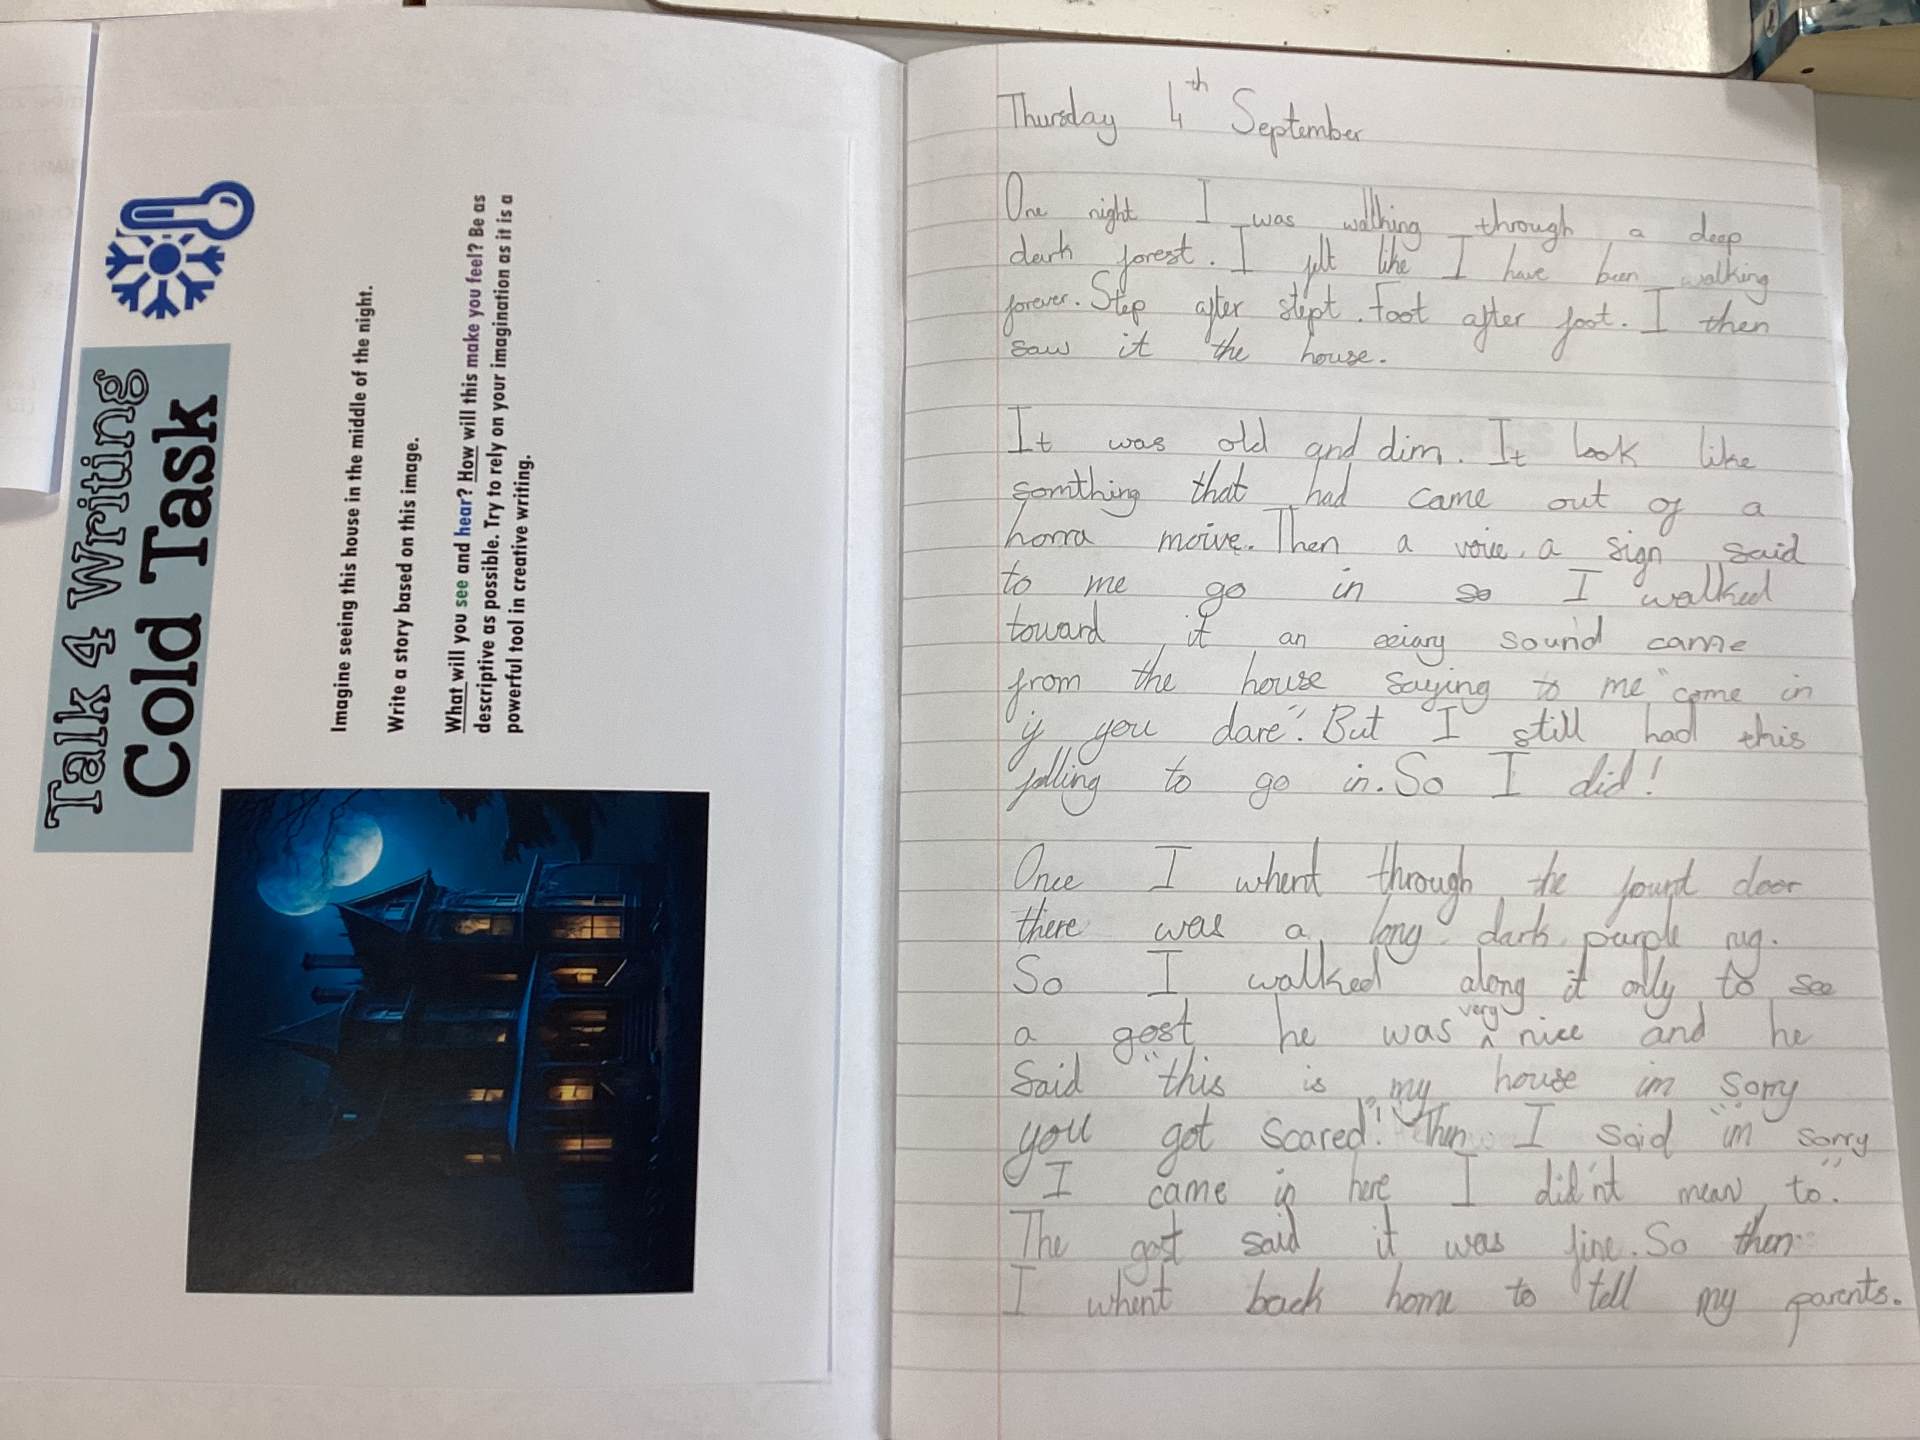 Talk 4 Writing
Cold Task
Imagine seeing this house in the middle of the night.
Write a story based on this image.
What will you see and hear? How will this make you feel? Be as
descriptive as possible. Try to rely on your imagination as it is a
powerful tool in creative writing.
Thursday 4th September
One night I was walking through a deep
dark forest. I felt like I have been walking
forever. Step after stept. Foot after foot. I then
saw it the house.
It was old and dim. It look like
somthing that had came out of a
horra moive. Then a voice, a sign said
to me go in so I walked
toward it an eeiary sound came
from the house saying to me "come in
if you dare". But I still had this
falling to go in. So I did!
Once I whent through the fount door
there was a long dark purple rug.
So I walked along it only to see
a gost he was very nice and he
Said "this is my house im sorry
you got scared!" Then I said "im sorry
I came in here I did'nt mean to".
The gost said it was fine. So then
I whent back home to tell my parents.